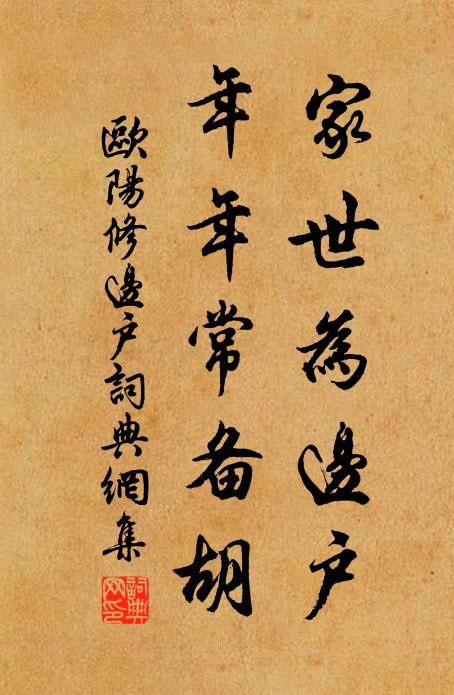 家世為邊户
年年常备胡
歐陽修邊户詞典網集
詞典
网印